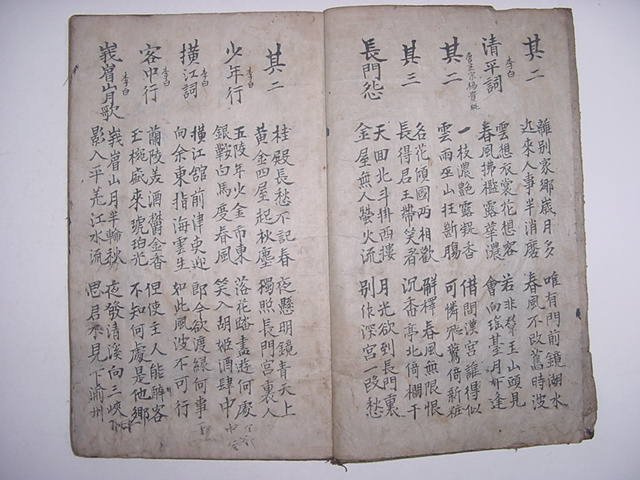 其二
離別家鄉歲月多 唯有門前鏡湖水
近來人事半消磨 春風不改舊時波
清平詞 李白
雲想衣裳花想容 若非群玉山頭見
春風拂檻露華濃 會向瑤基月下逢
其二
一枝濃艷露凝香 借問漢宮誰得似
雲雨巫山枉斷腸 可憐飛燕倚新粧
其三
名花傾國兩相歡 解釋春風無限恨
長得君王帶笑看 沉香亭北倚欄干
長門怨
天囬北斗掛西樓 月光欲到長門裏
金屋無人螢火流 別作深宮一段愁
其二
桂殿長愁不記春 夜懸明鏡青天上
黃金四屋起秋塵 獨照長門宮裏人
少年行 李白
五陵年少金市東 落花踏盡遊何處
銀鞍白馬度春風 笑入胡姬酒肆中
橫江詞 李白
橫江舘前津吏迎 郎今欲渡緣何事
向余東指海雲生 如此風波不可行
客中行 李白
蘭陵美酒鬱金香 但使主人能醉客
玉椀盛來琥珀光 不知何處是他鄉
峩眉山月歌 李白
峩眉山月半輪秋 夜發清溪向三峽
影入平羌江水流 思君不見下渝州